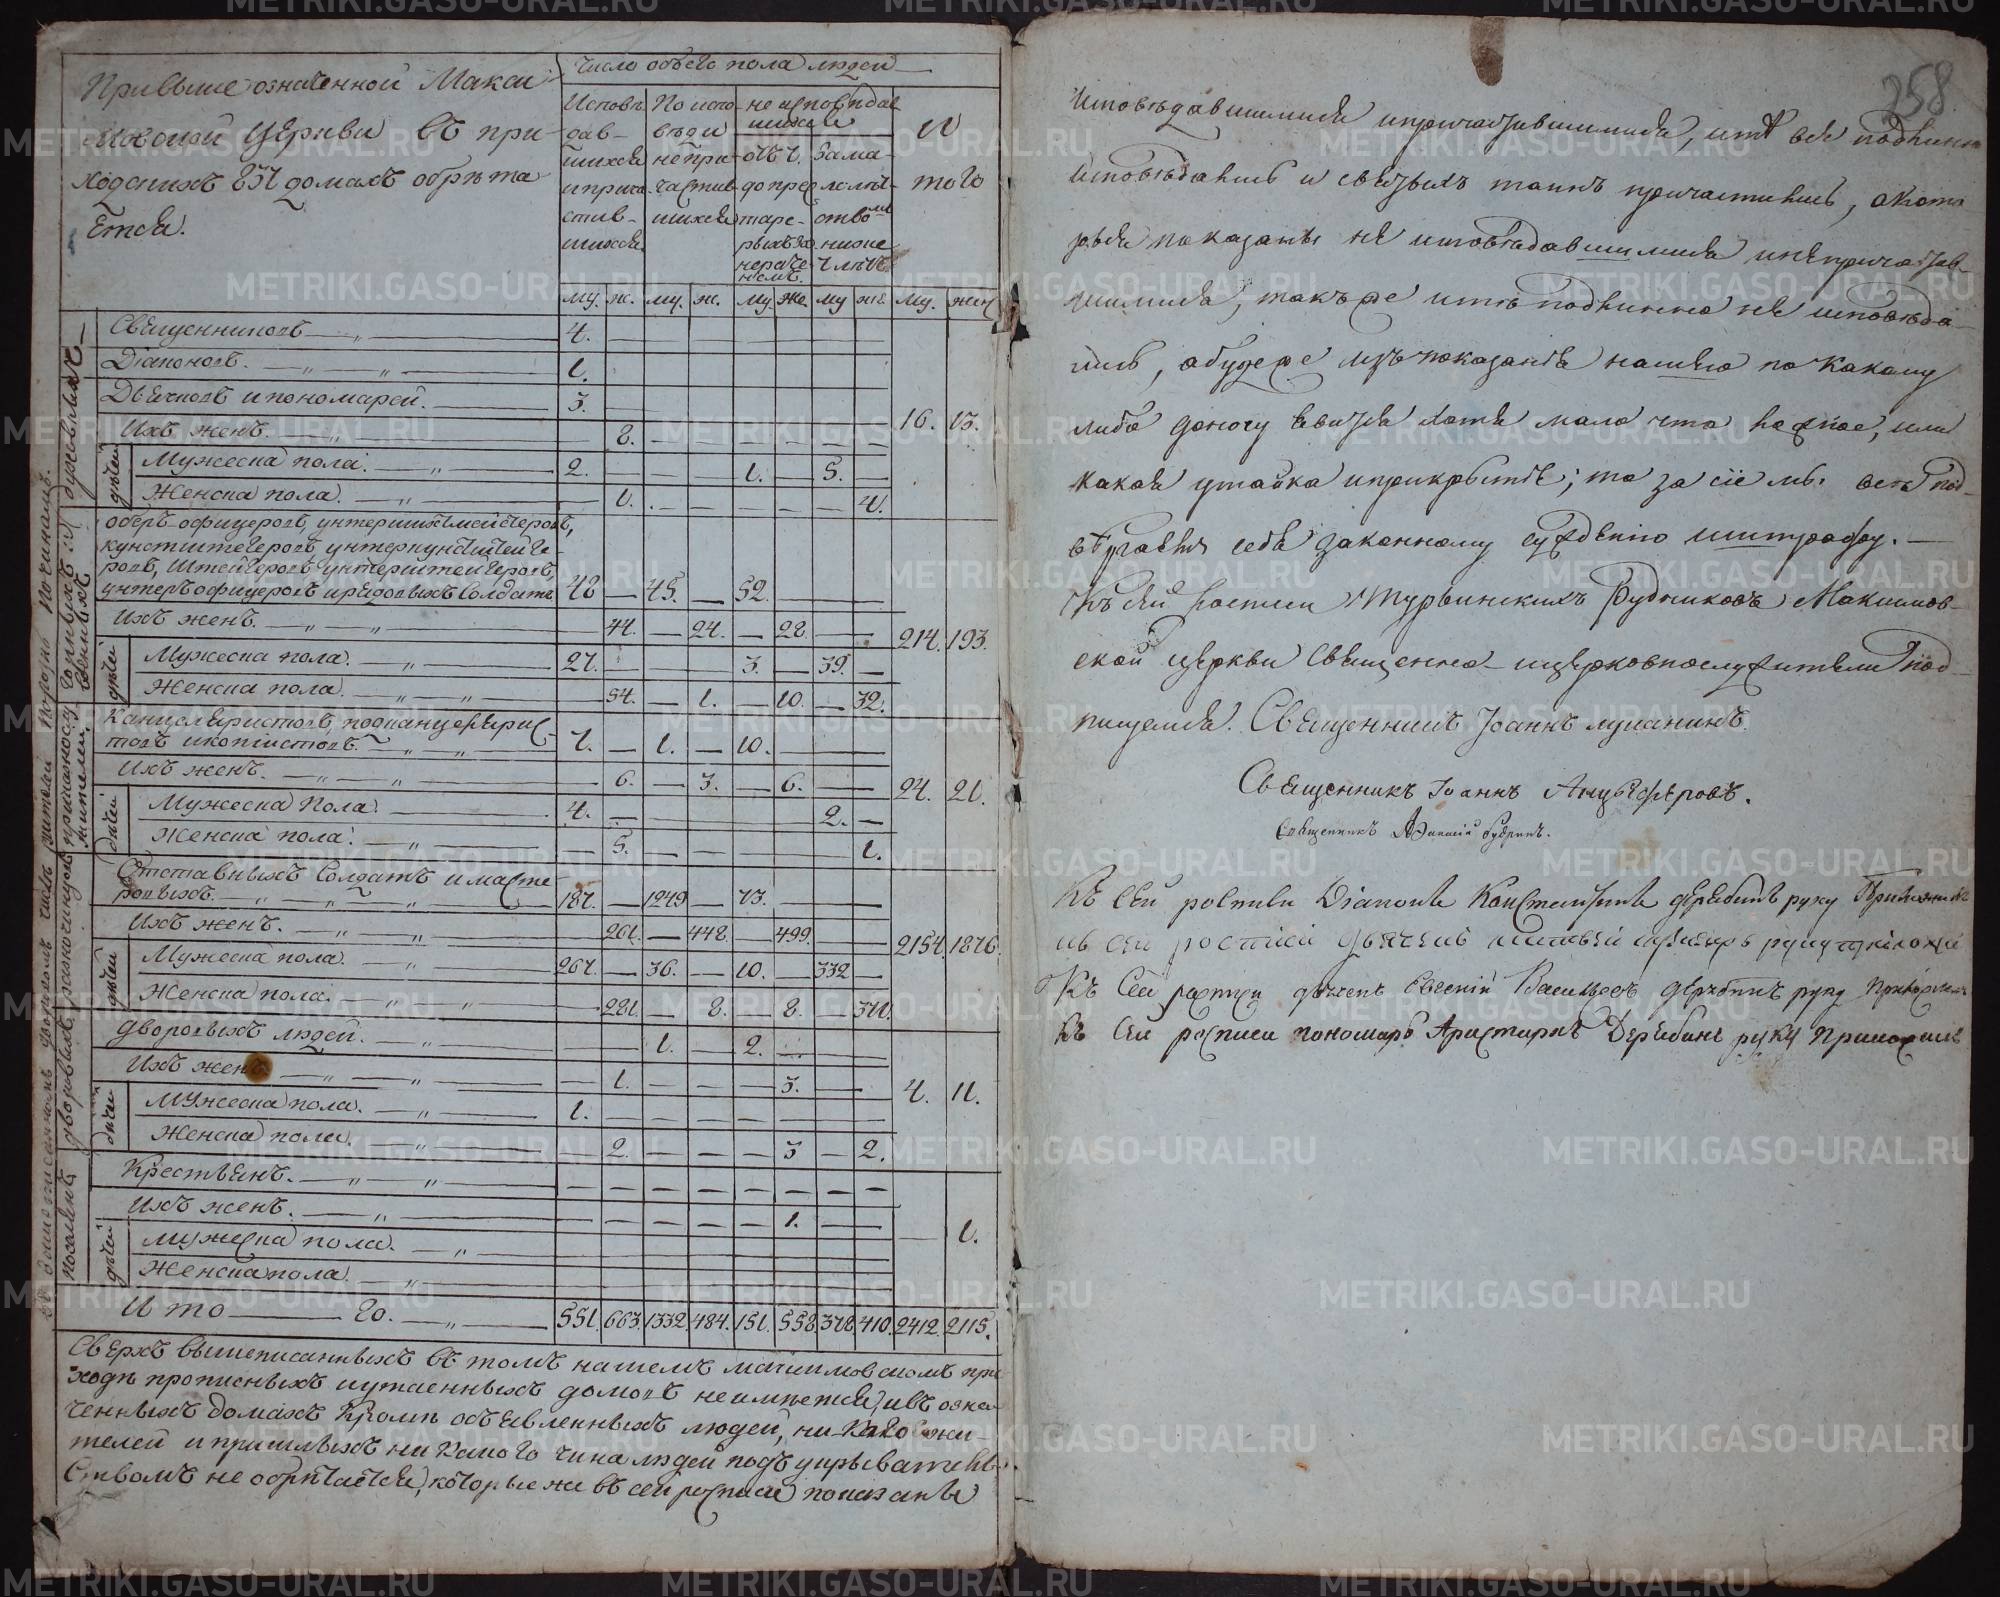 При выше означенной Макси
мовской церкви въ при-
ходскихъ домахъ обрѣта
ется.
Число обѣего пола людей
Исповѣ
дав-
шихся
и прича
стив-
шихся
По испо-
вѣди
не при-
частив
шихся
не исповѣдав
шихся
до прес
таре-
рачѣ-
ніемъ
за ма-
лолѣт-
ствомъ
И
того
му. ж. му. ж. му. же. му же. му. жен
Священниковъ 4.
Діаконовъ. 1.
Дьячковъ и пономарей. 3.
Ихъ женъ. 8.
16. 13.
дѣтей
Мужеска пола. 2. 1. 5.
Женска пола. 1. 4.
оберъ офицеровъ, унтершихтмейстеровъ,
унтеръ офицеровъ и рядовыхъ солдатъ 48 45. 52.
Ихъ женъ. 44. 24. 28.
214. 193.
дѣтей
Мужеска пола. 27. 3. 39.
Женска пола. 54. 1. 10. 32.
Канцеляристовъ, подканцелярис
товъ и копіистовъ. 7. 1. 10.
Ихъ женъ. 6. 3. 6.
24. 21.
дѣтей
Мужеска пола. 4. 2.
Женска пола. 5. 1.
Отставныхъ солдатъ и масте
ровыхъ. 187. 1249 73.
Ихъ женъ. 261. 448. 499.
2154. 1876.
дѣтей
Мужеска пола. 267. 36. 10. 332
Женска пола. 281. 8. 8. 371.
дворовыхъ людей. 1. 2.
Ихъ женъ 1. 3.
4. 11.
дѣтей
Мужеска пола. 1.
Женска пола. 2. 3 2.
Крестьянъ.
Ихъ женъ. 1.
1.
дѣтей
Мужеска пола.
Женска пола.
И то го. 551. 663. 1332 484. 151. 558. 378. 410. 2412. 2115.
Сверхъ вышеписанныхъ въ томъ нашемъ максимовскомъ при
ходѣ прописныхъ и утаенныхъ домовъ не имѣется, и въ озна-
ченныхъ домахъ кромѣ объявленныхъ людей, ни какова жи-
телей и пришлыхъ ни какого чина людей подъ укрывательс
ствомъ не обрѣтается, которые же въ сей росписи показаны
258
исповѣдавшимися и причастившимися, и тѣ все подлинно
исповѣдались и святыхъ таинъ причастились, а кото
рыя показаны не исповѣдавшимися и не причастив-
шимися, такъ же и тѣ подлинно не исповѣда-
лись, а буде же изъ показанія нашего по какому
либо доносу явится хотя мало что ложное, или
какая утайка и прикрытіе; то за сіе мы
подвергаемъ себя законному сужденію и штрафу.
Къ сей росписи Турьинскихъ Рудниковъ Максимов-
ской церкви священно- и церковнослужители под-
пишемся. Священникъ Іоаннъ Луканинъ.
Священникъ Іоаннъ Анцыферовъ.
Священникъ Афанасій Кудринъ.
Къ сей росписи Діаконъ Константинъ Дерябинъ руку приложилъ
къ сей росписи дьячекъ руку приложилъ
Къ сей росписи дьячекъ Евгений Васильевъ Дерябинъ руку приложилъ
Къ сей росписи пономарь Аристархъ Дерябинъ руку приложилъ
METRIKI.GASO-URAL.RU